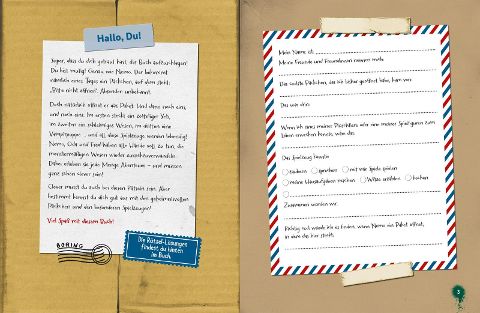 Hallo, Du!
Super, dass du dich getraut hast, die Buch aufzuschlagen!
Du bist mutig! Genau wie Nemo. Der bekommt
nämlich eines Tages ein Päckchen, auf dem steht:
„Bitte nicht öffnen!“ Absender unbekannt.
Doch natürlich öffnet er das Paket. Und dann noch eins,
und noch eins. Im ersten steckt ein
im zweiten ein schleimiges Wesen, im dritten eine
Vampirpuppe ... und all diese Spielzeuge werden lebendig!
Nemo, Oda und Fred haben alle Hände voll zu tun, die
Wesen wieder
Dabei erleben sie jede Menge Abenteuer – und müssen
ganz schön clever sein!
Clever musst du auch bei diesen Rätseln sein. Aber
bestimmt kennst du dich gut aus mit den geheimnisvollen
Päckchen und den besonderen Spielzeugen!
Viel Spaß mit diesem Buch!
BORING
Die Rätsel-Lösungen
findest du hinten
im Buch.
Mein Name ist
Meine Freunde und Freundinnen nennen mich
Das coolste Päckchen, das ich bisher geöffnet habe, kam von
Das war drin:
Wenn ich eines meiner Plüschtiere oder eine meiner Spielfiguren zum
Leben erwecken könnte, wäre das
Das Spielzeug könnte
zaubern sprechen mit mir Spiele spielen
meine Hausaufgaben machen Witze erzählen kochen
Zusammen würden wir
Richtig toll würde ich es finden, wenn Nemo ein Paket öffnet,
in dem das hier steckt:
3